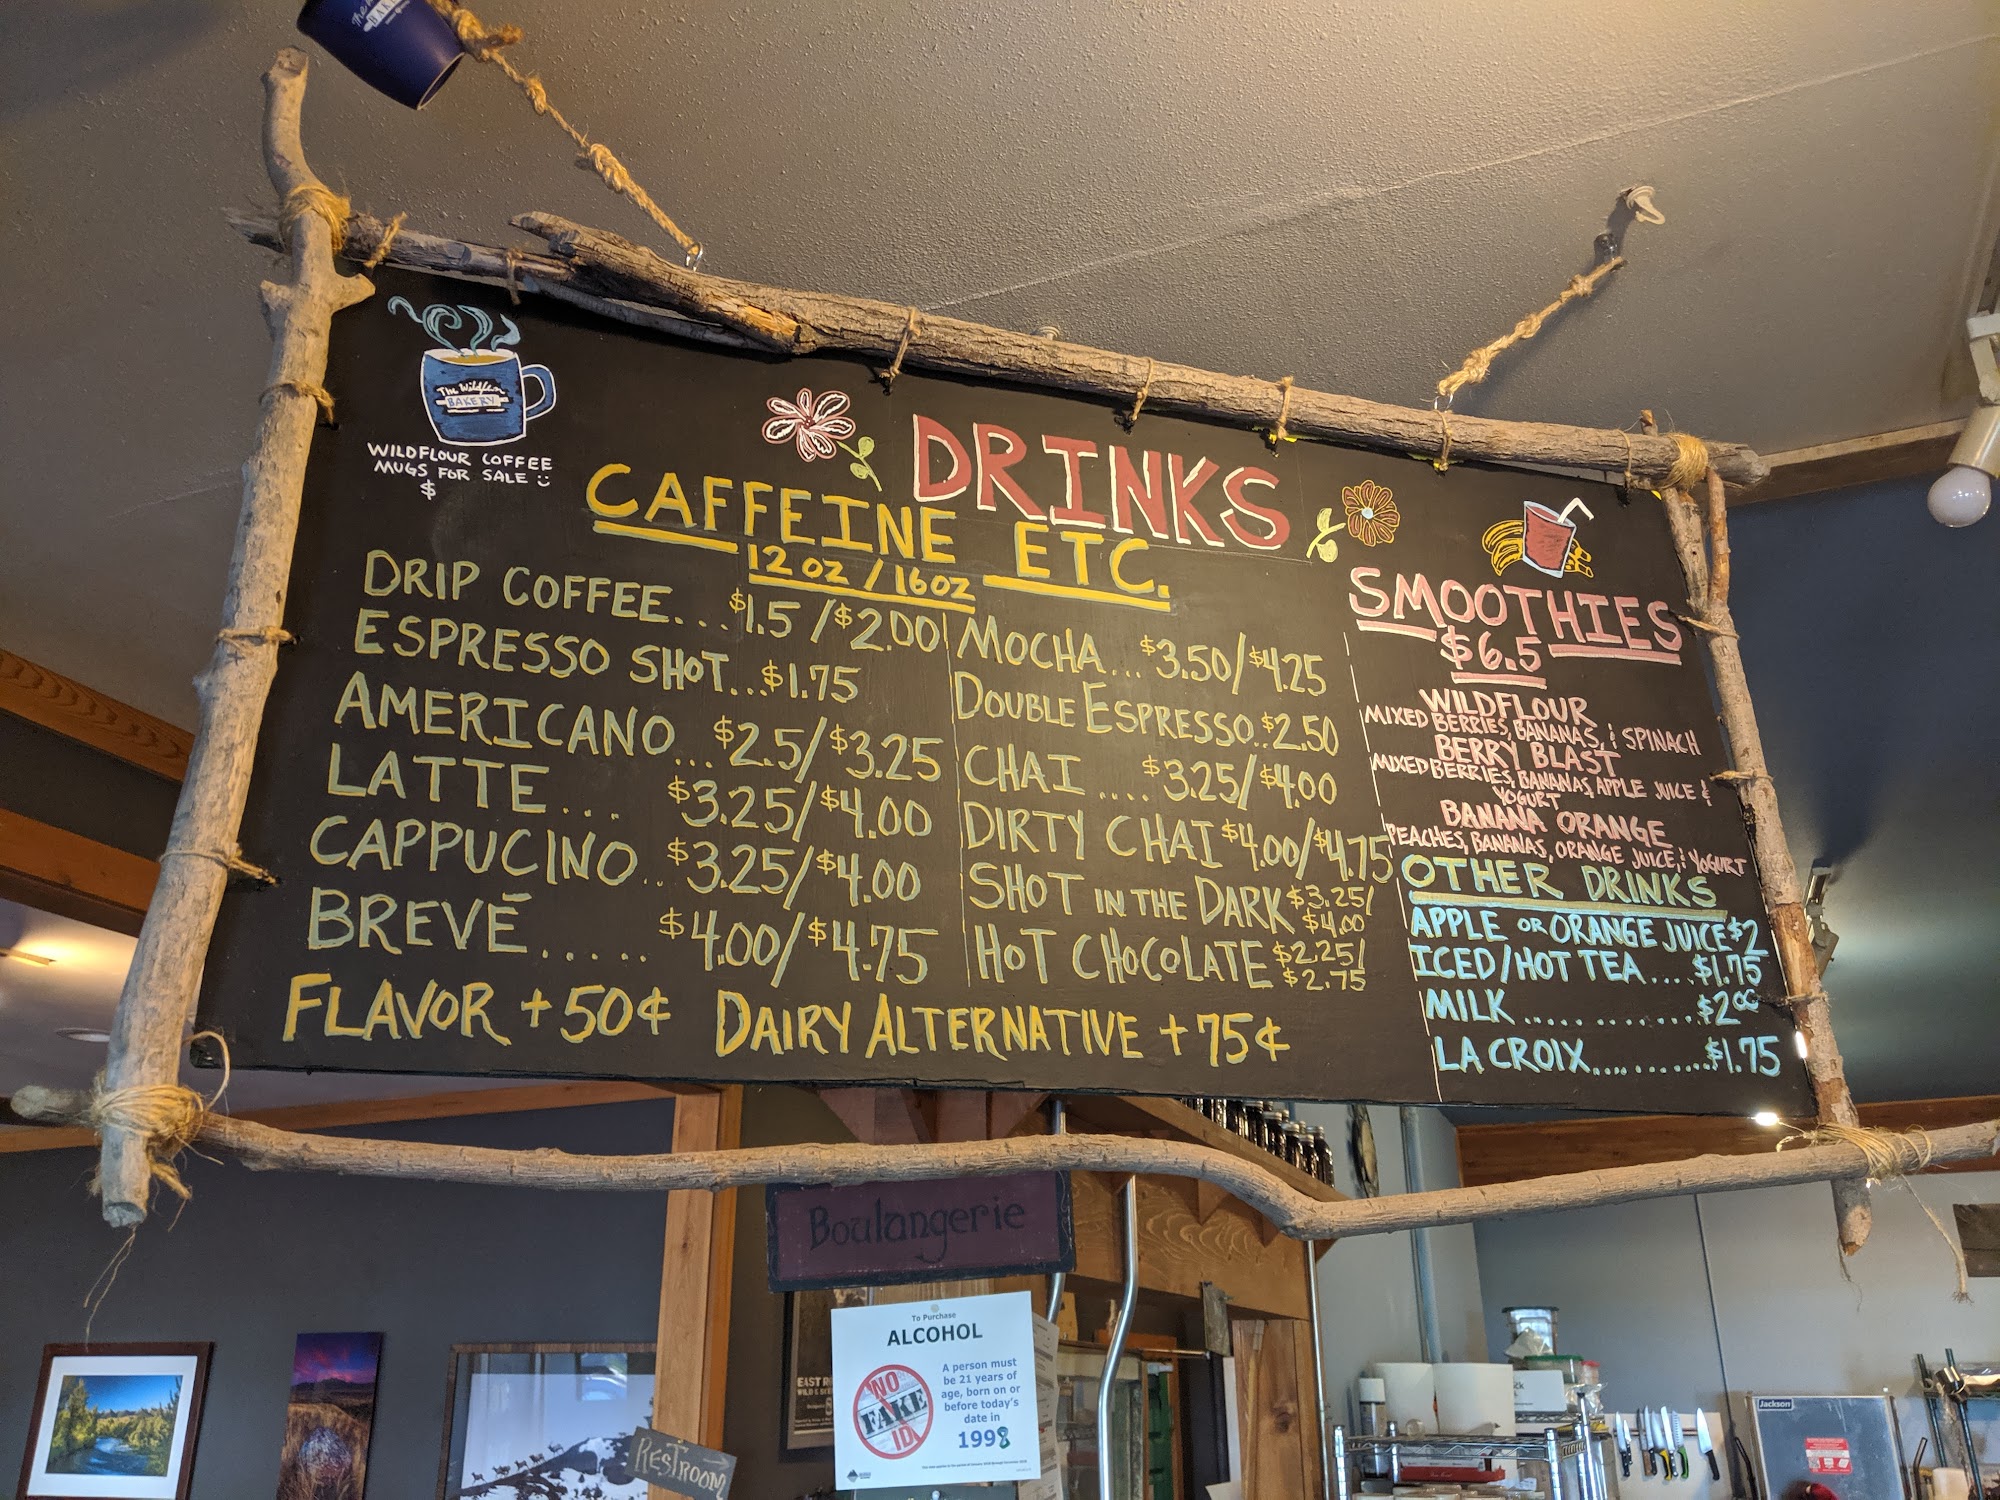 The Wildflour
BAKERY
WILDFLOUR COFFEE
MUGS FOR SALE
$
DRINKS
CAFFEINE ETC.
12 OZ / 16 OZ
DRIP COFFEE... $1.5 / $2.00
ESPRESSO SHOT...$1.75
AMERICANO... $2.5/$3.25
LATTE... $3.25/$4.00
CAPPUCINO.. $3.25/$4.00
BREVÉ..... $4.00/$4.75
MOCHA... $3.50/$4.25
DOUBLE ESPRESSO..$2.50
CHAI .... $3.25/$4.00
DIRTY CHAI $4.00/$4.75
SHOT IN THE DARK $3.25/
$4.00
HOT CHOCOLATE $2.25/
$2.75
FLAVOR +50¢ DAIRY ALTERNATIVE +75¢
SMOOTHIES
$6.5
WILDFLOUR
MIXED BERRIES, BANANAS, & SPINACH
BERRY BLAST
MIXED BERRIES, BANANAS, APPLE JUICE &
YOGURT
BANANA ORANGE
PEACHES, BANANAS, ORANGE JUICE, & YOGURT
OTHER DRINKS
APPLE OR ORANGE JUICE $2
ICED/HOT TEA....$1.75
MILK ..............$2.00
LA CROIX..........$1.75
Boulangerie
To Purchase
ALCOHOL
NO
FAKE
ID
A person must
be 21 years of
age, born on or
before today's
date in
1998
RESTROOM
Jackson